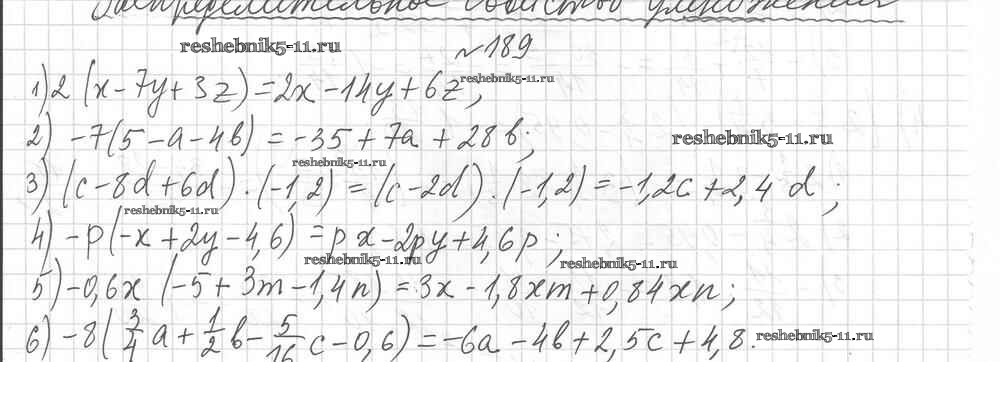 Распределительное свойство умножения
reshebnik5-11.ru
№189
reshebnik5-11.ru
1) 2 (x - 7y + 3z) = 2x - 14y + 6z;
2) -7(5 - a - 4b) = -35 + 7a + 28b;
reshebnik5-11.ru
reshebnik5-11.ru
3) (c - 8d + 6d) · (-1,2) = (c - 2d) · (-1,2) = -1,2c + 2,4d;
reshebnik5-11.ru
4) -p(-x + 2y - 4,6) = px - 2py + 4,6p;
reshebnik5-11.ru
reshebnik5-11.ru
5) -0,6x (-5 + 3m - 1,4n) = 3x - 1,8xm + 0,84xn;
6) -8(3/4 a + 1/2 b - 5/16 c - 0,6) = -6a - 4b + 2,5c + 4,8.
reshebnik5-11.ru